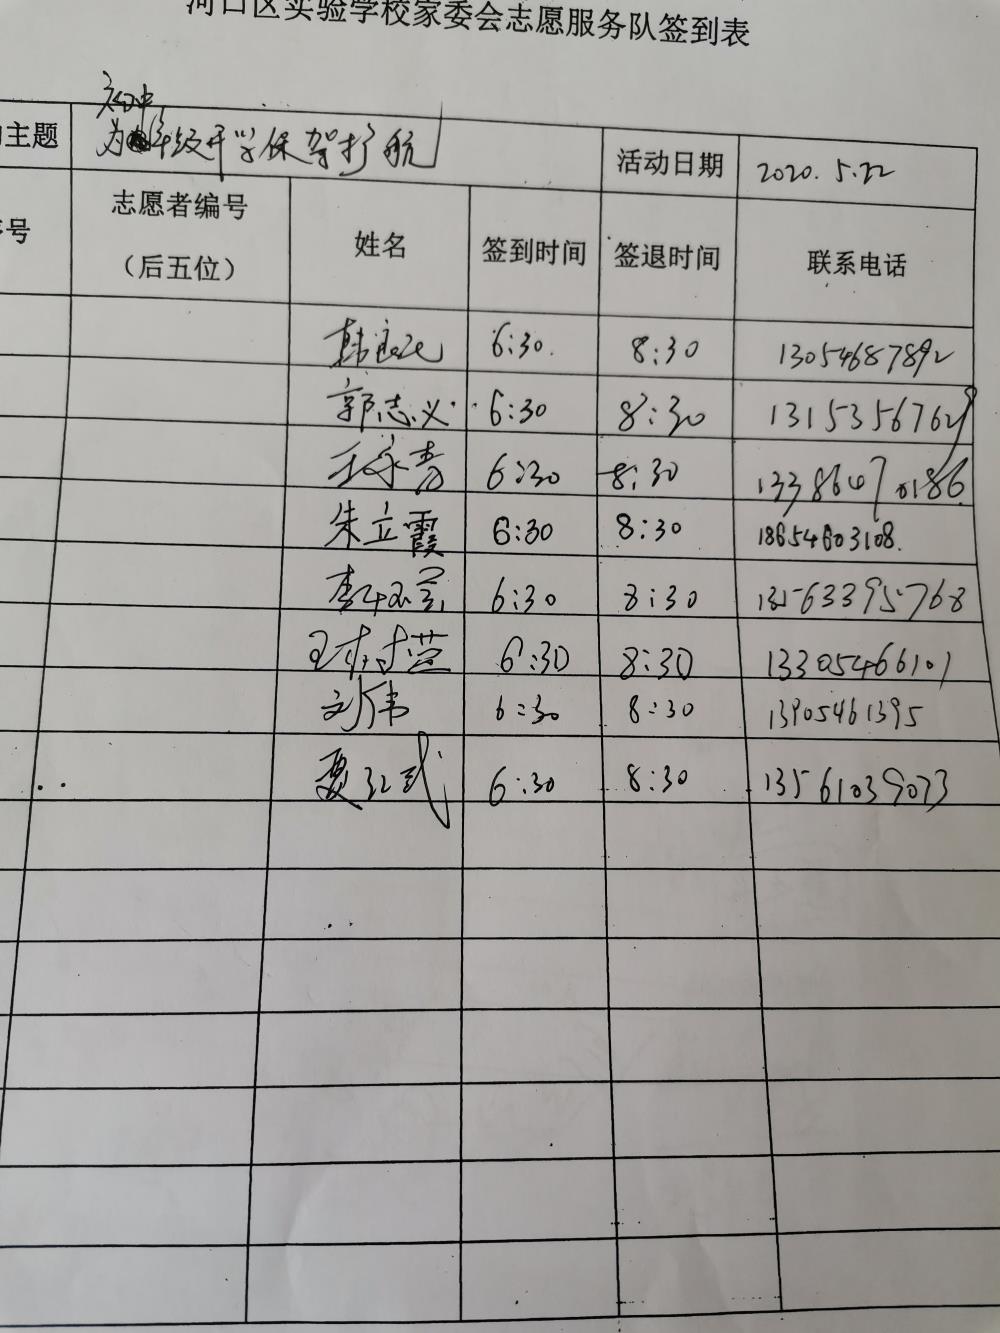 河口区实验学校家委会志愿服务队签到表
初中
主题 为年级开学保驾护航 活动日期 2020.5.22
号 志愿者编号（后五位） 姓名 签到时间 签退时间 联系电话
6:30. 8:30 13054687892
郭志义 6:30 8:30
王永青 6:30 8:30 13386470186
朱立霞 6:30 8:30 18654603108.
6:30 8:30 13563395768
6:30 8:30 13305466101
刘伟 6:30 8:30 13905461395
夏红武 6:30 8:30 13561039073